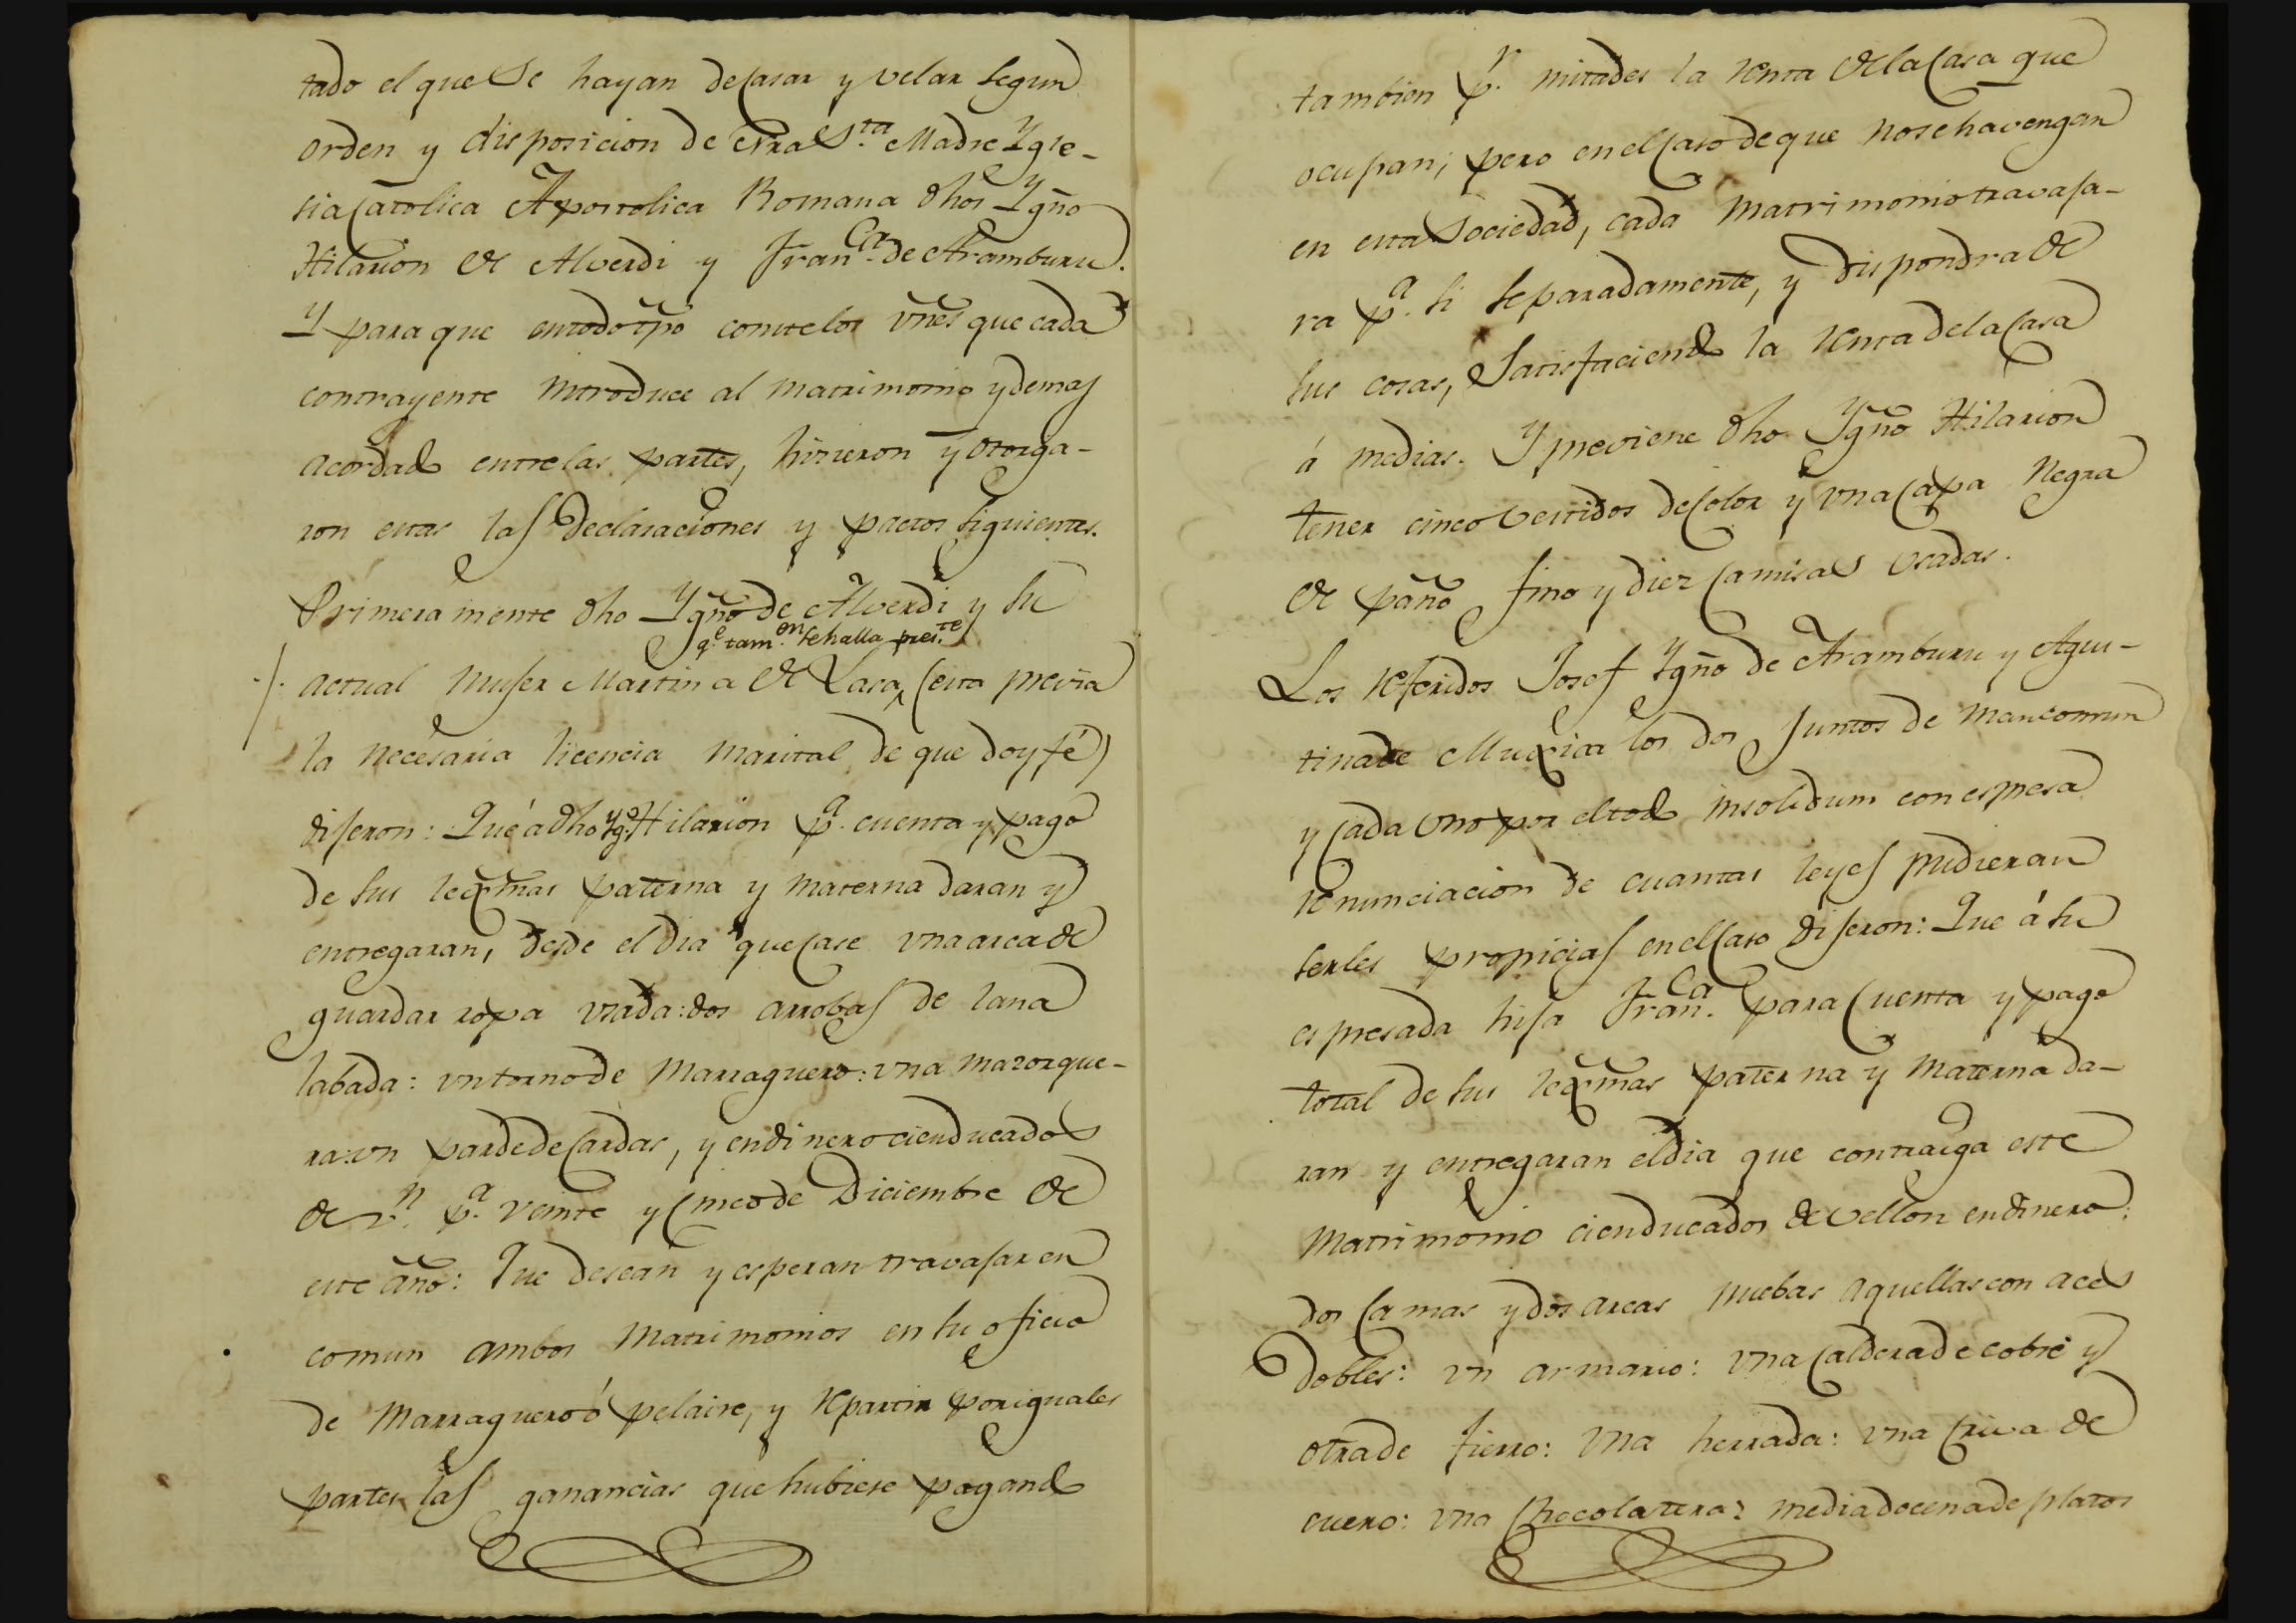 tado el que se hayan de Casar y velar segun
orden y disposicion de nrã S.ta Madre Ygle-
sia Catolica Apostolica Romana dhos Ygño
Hilarion de Alverdi y Fran.ca de Aramburu.
Y para que en todo tpõ conste los vnẽs que cada
contrayente introduce al matrimonio y demas
acordado entre las partes, hicieron y otorga-
ron estas las declaraciones y pactos siguientes.
Primeramente dho Ygño de Alverdi y su
q.e tam.on se halla pres.te
actual muger Martina de Lasa, (esta previa
la necesaria licencia marital de que doy fé)
digeron: Que á dho Yg.o Hilarion p.a cuenta y pago
de sus legmãs paterna y materna daran y
entregaran, desde el dia que Case una arca de
guardar ropa usada: dos arrobas de lana
labada: un torno de Marraguero: una mazorque-
ra: un par de de Cardas, y en dinero cien ducados
de v.n p.a veinte y Cinco de Diciembre de
este año: Que desean y esperan travajar en
comun ambos Matrimonios en su oficio
de Marraguero ó pelaire, y repartir por iguales
partes las ganancias que hubiese pagando
tambien p.r mitades la renta de la Casa que
ocupan; pero en el Caso de que no se havengan
en esta Sociedad, cada Matrimonio travaja-
ra p.a si separadamente, y dispondra de
sus cosas, Satisfaciendo la renta de la Casa
á medias. Y previene dho Ygño Hilarion
tener cinco vestidos de Color y una Capa Negra
de paño fino y diez Camisas usadas.
Los referidos Josef Ygño de Aramburu y Agus-
tina de Mugica los dos Juntos de mancomun
y Cada uno por el todo insolidum con espresa
renunciacion de cuantas leyes pudieran
serles propicias en el Caso digeron: Que á su
espresada hija Fran.ca para Cuenta y pago
total de sus legmãs paterna y materna da-
ran y entregaran el dia que contraiga este
Matrimonio cien ducados de vellon en dinero:
dos Camas y dos arcas nuebas aquellas con aces
dobles: un armario: una Caldera de cobre y
otra de fierro: una herrada: una Criva de
cuero: una Chocolatera: media docena de platos